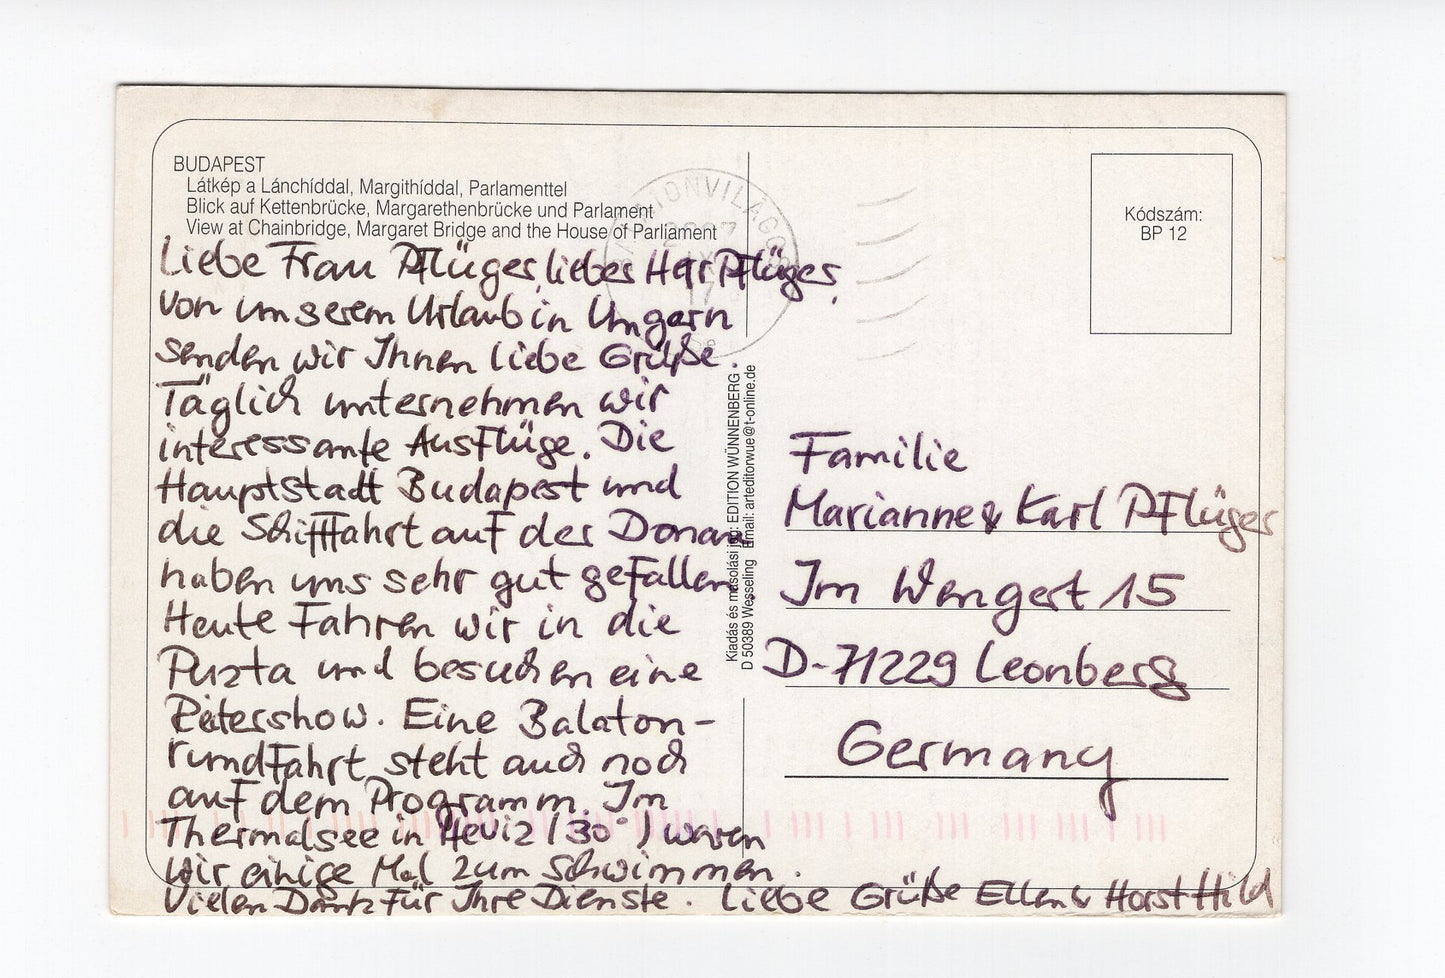 BUDAPEST
Látkép a Lánchíddal, Margithíddal, Parlamenttel
Blick auf Kettenbrücke, Margarethenbrücke und Parlament
View at Chainbridge, Margaret Bridge and the House of Parliament
Liebe Frau Pflüger, liebes Herr Pflüger,
von unserem Urlaub in Ungarn
senden wir Ihnen liebe Grüße.
Täglich unternehmen wir
interessante Ausflüge. Die
Hauptstadt Budapest und
die Schifffahrt auf der Donau
haben uns sehr gut gefallen.
Heute fahren wir in die
Puszta und besuchen eine
Reitershow. Eine Balaton-
rundfahrt steht auch noch
auf dem Programm. Im
Thermalsee in Heviz (30°) waren
wir einige Mal zum Schwimmen.
Vielen Dank für Ihre Dienste. Liebe Grüße Ellen & Horst Hild
Kiadás és másolási jog: EDITION WÜNNENBERG
D 50389 Wesseling Email: arteditorwue@t-online.de
BALATONVILÁGOS
2007
IX
17
Kódszám:
BP 12
Familie
Marianne & Karl Pflüger
Im Wengert 15
D-71229 Leonberg
Germany